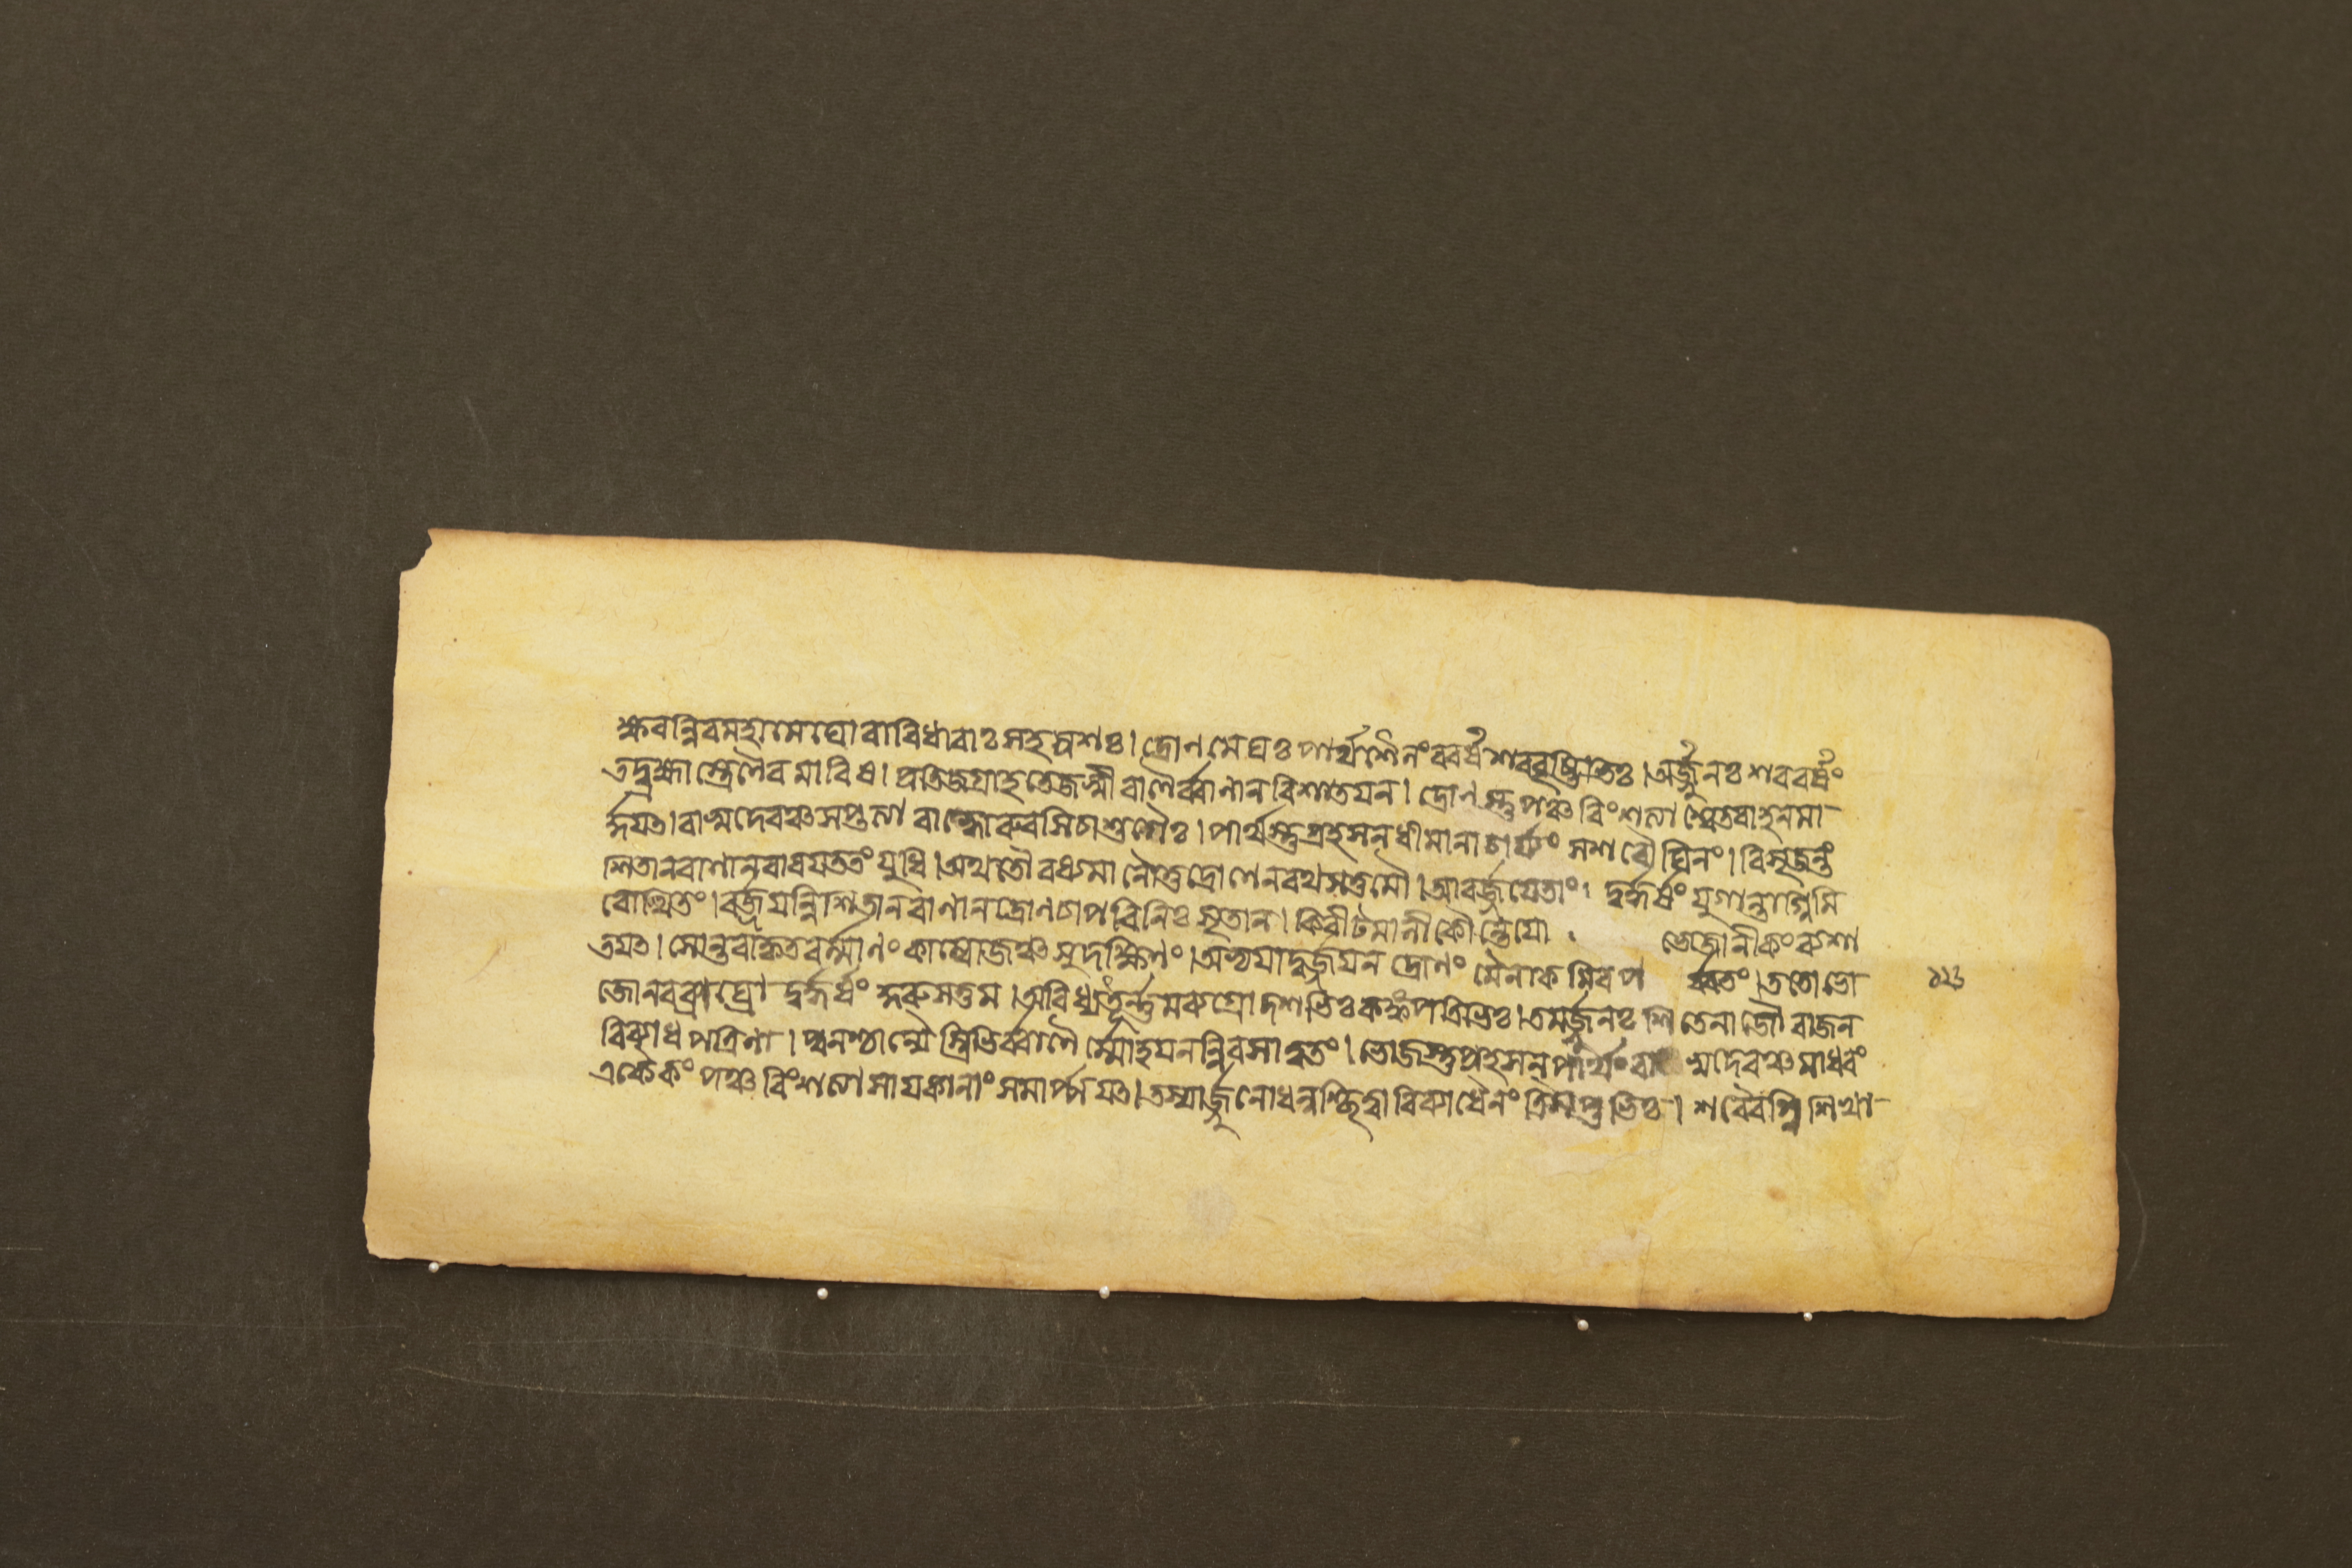 ক্ষরন্নিবমহামেঘোবাবিধাবাঃসহস্রশঃ। দ্রোনমেঘঃপার্থশৈলংববর্ষশববৃষ্টিভিঃ। অর্জ্জুনঃশববর্ষং
তদ্ব্রহ্মাস্ত্রেণৈবমাবিধ। প্রতিজগ্রাহতেজস্বীবাণৈর্ব্বাণানবিশাতয়ন। দ্রোনস্তুপঞ্চবিংশত্যা শ্বেতবাহনমা
র্দ্দয়ত। বাসুদেবঞ্চসপ্তত্যা বাহ্বোরুরসিচাশুগৈঃ। পার্থস্তুপ্রহসনধীমানাচার্য্যং সশবৌঘিনং। বিসৃজন্তং
শিতানবাণানবাবয়ততংযুধি। অথতৌবধ্যমানৌতুদ্রোণেনবথসত্তমৌ। আবর্জ্জয়েতাং। দুর্দ্ধর্ষং যুগান্তাগ্নিমি
বোত্থিতং। বর্জ্জয়ন্নিশিতানবাণানদ্রোনচাপবিনিঃসৃতান। কিবীটমালীকৌন্তেয়ো ভোজানীকংব্যশা
তয়ত। সোন্তবাকৃতবর্ম্মাণং কাম্বোজঞ্চসুদক্ষিণং। অভ্যয়াদ্বর্জ্জয়ন দ্রোণং মৈনাকমিবপ র্ব্বতং। ততোভো
জোনবব্যাঘ্রো দুর্দ্ধর্ষং কুরুসত্তম। অবিধ্যত্তূর্ন্নমব্যগ্রোদশভিঃকঙ্কপত্রিভিঃ। তমর্জ্জুনঃশিতেনাজৌবাজন
বিব্যাধপত্রিনা। পুনশ্চান্যৈস্ত্রিভির্ব্বাণৈর্ম্মোহয়নন্নিবসাত্বতং। ভোজস্তুপ্রহসনপার্থংবা সুদেবঞ্চমাধবং
একৈকং পঞ্চবিংশত্যাসায়কানাংসমার্প্পয়ত। তস্যার্জ্জুনোধনুশ্ছিত্ত্বাবিব্যাধৈনং ত্রিসপ্তভিঃ। শবৈবগ্নিশিখা